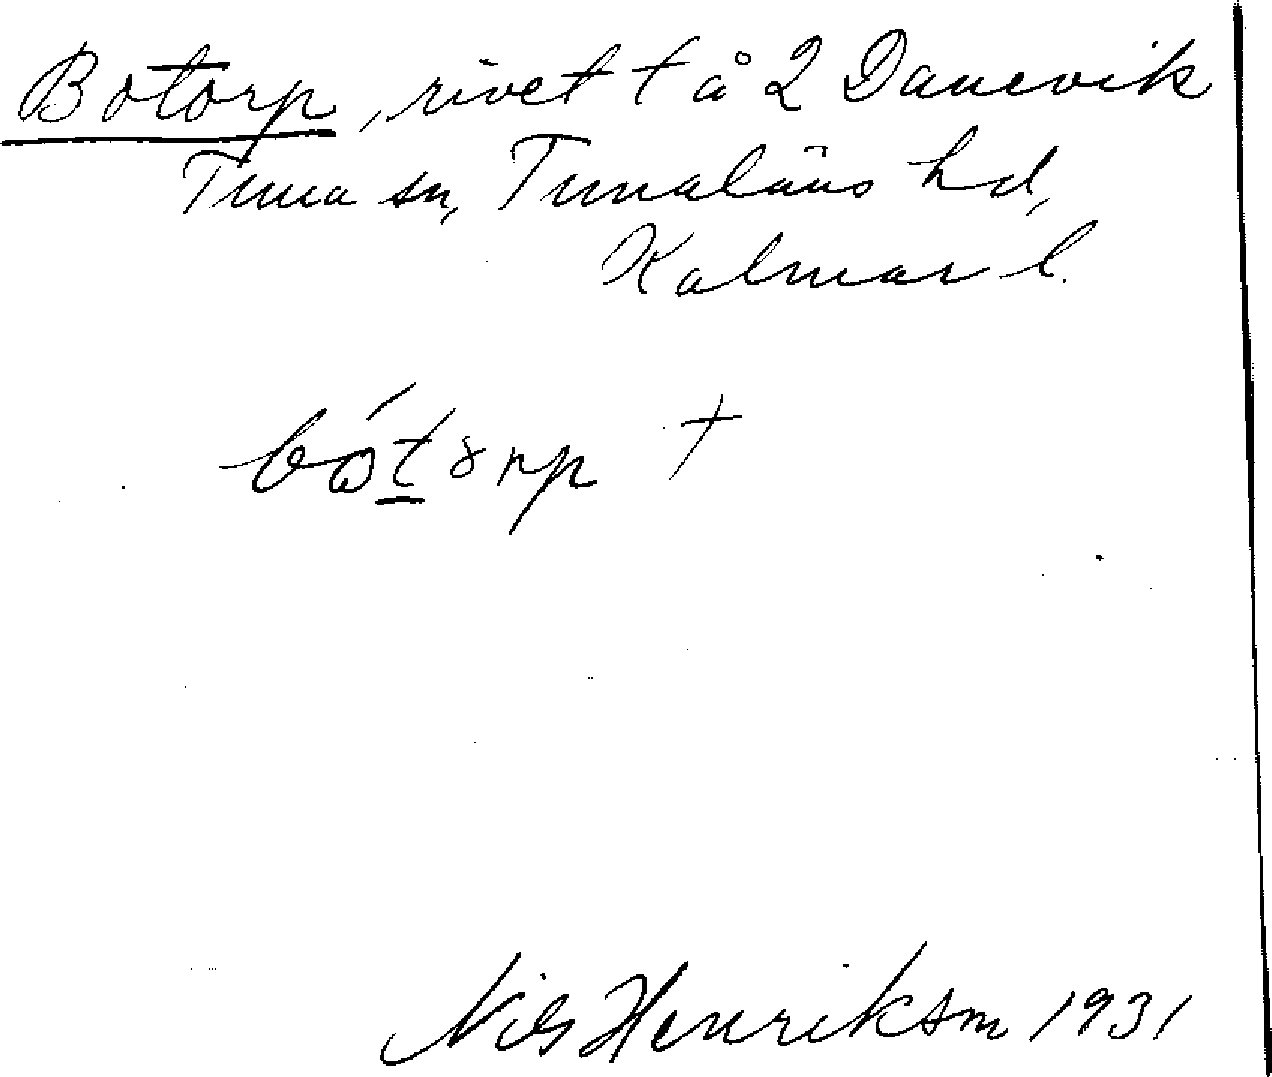 Botorp, rivet t å 2 Danevik
Tuna sn, Tunaläns hd,
Kalmar l.
bót8rp †
Nils Henriksson 1931